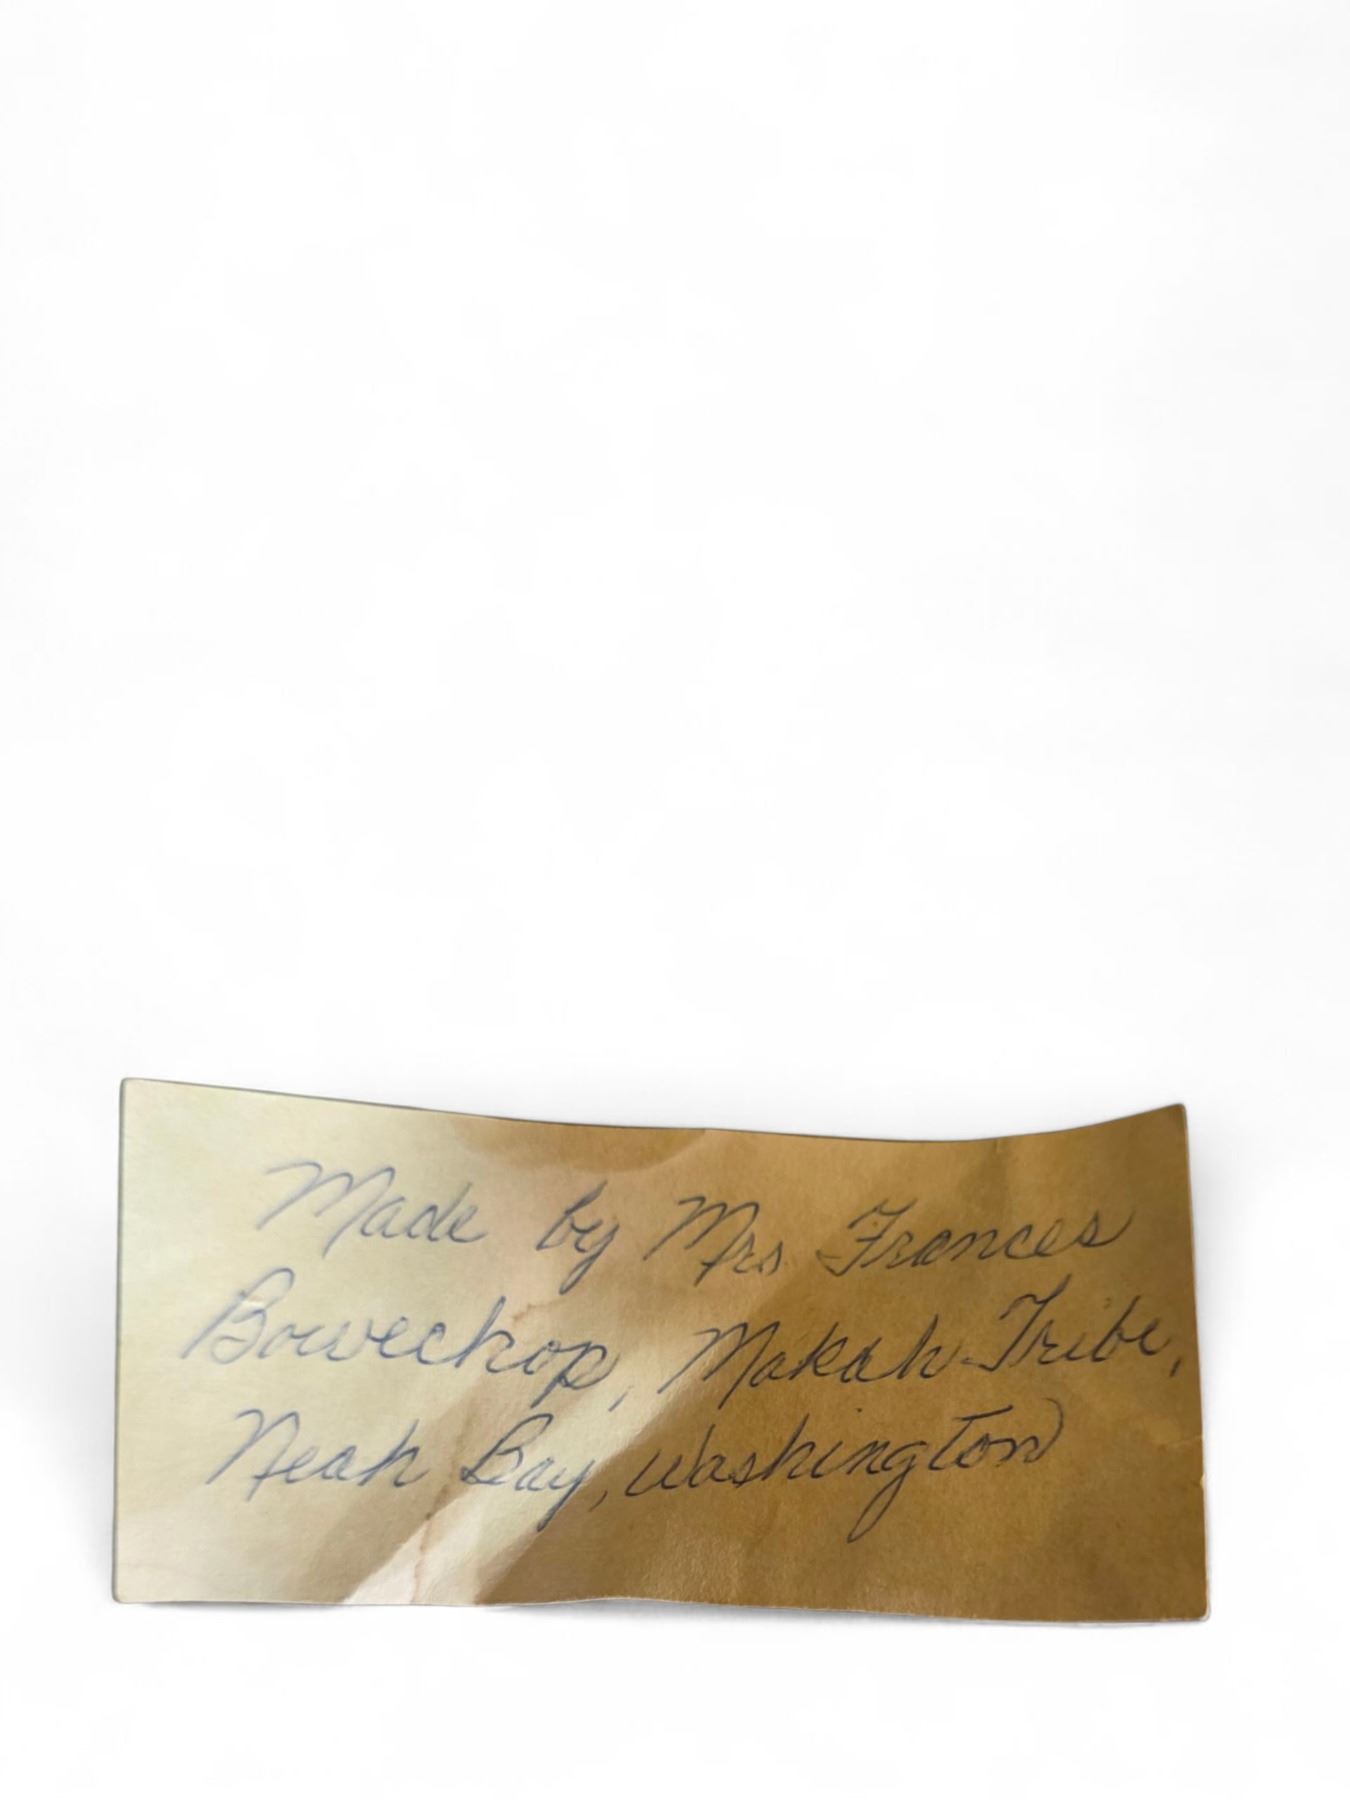 Made by Mrs Frances
Bowechop, Makah Tribe,
Neah Bay, Washington